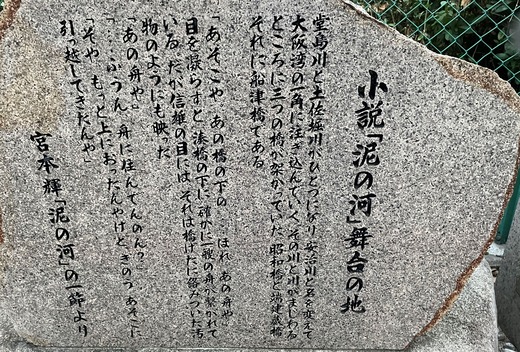 小説「泥の河」舞台の地
堂島川と土佐堀川がひとつになり、安治川と名を変えて
大阪湾の一角に注ぎ込んでいく。その川と川がまじわる
ところに三つの橋が架かっていた。昭和橋と端建蔵橋、
それに船津橋である。
「あそこや、あの橋の下の……ほれ、あの舟や」
目を凝らすと、湊橋の下に、確かに一艘の舟が繋がれて
いる。だが信雄の目には、それは橋げたに絡みついた汚
物のようにも映った。
「あの舟や」
「……ふうん、舟に住んでんのん?」
「そや、もっと上におったんやけど、きのう、あそこに
引っ越してきたんや」
宮本輝「泥の河」の一節より